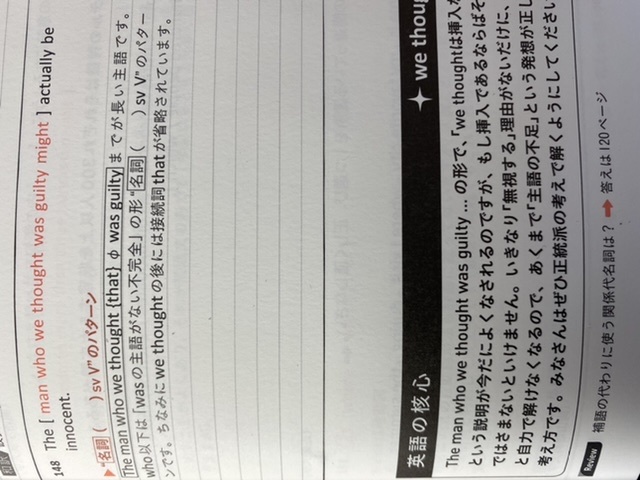 148 The [ man who we thought was guilty might ] actually be
innocent.
▶"名詞 (　　) sv V"のパターン
The man who we thought {that} φ was guilty までが長い主語です。
who 以下は「was の主語がない不完全」の形 "名詞 (　　) sv V" のパター
ンです。ちなみに we thought の後には接続詞 that が省略されています。
英語の核心
✦ we thou
The man who we thought was guilty ... の形で、「we thought は挿入
という説明が今だによくなされるのですが、もし挿入であるならばそ
ではさまないといけません。いきなり「無視する」理由がないだけに、
と自力で解けなくなるので、あくまで「主語の不足」という発想が正し
考え方です。みなさんはぜひ正統派の考えで解くようにしてください
Review 補語の代わりに使う関係代名詞は？ ➡ 答えは120ページ